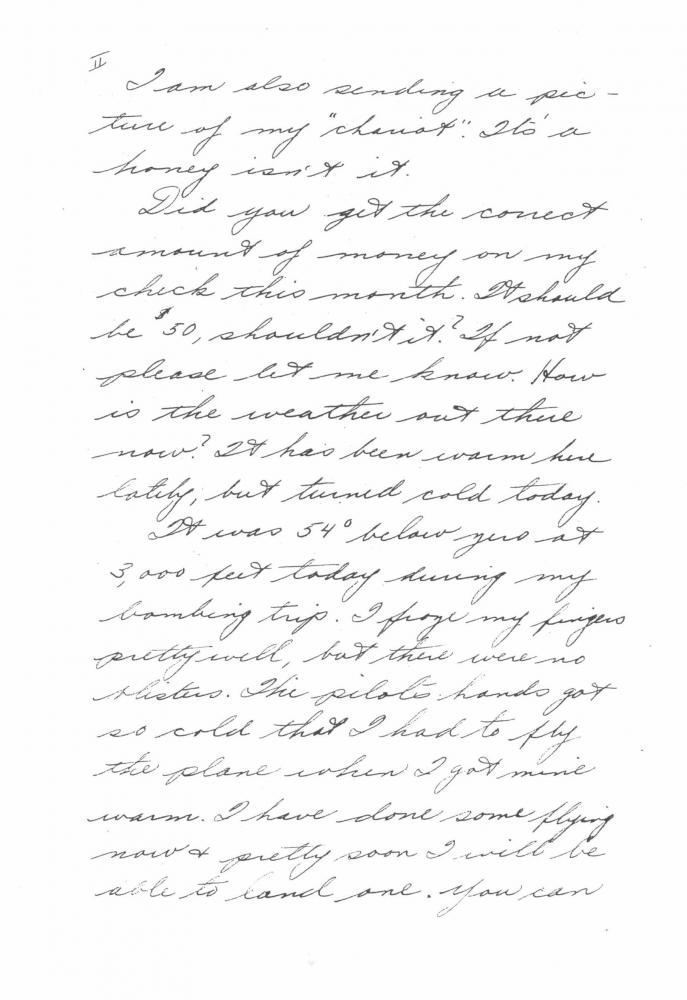 II
I am also sending a pic-
ture of my "chariot". Its' a
honey isn't it.
Did you get the correct
amount of money on my
check this month. It should
be $50, shouldn't it? If not
please let me know. How
is the weather out there
now? It has been warm here
lately, but turned cold today.
It was 54° below zero at
3,000 feet today during my
bombing trip. I froze my fingers
pretty well, but there were no
blisters. The pilots hands got
so cold that I had to fly
the plane when I got mine
warm. I have done some flying
now & pretty soon I will be
able to land one. You can